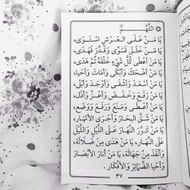 اللَّهُمَّ
يَا مَنْ عَلَى الْعَرْشِ اسْتَوَى،
يَا مَنْ خَلَقَ فَسَوَّى وَقَدَّرَ فَهَدَى،
يَا مَنْ أَعْطَى كُلَّ شَيْءٍ خَلْقَهُ ثُمَّ هَدَى،
يَا مَنْ أَضْحَكَ وَأَبْكَى وَأَمَاتَ وَأَحْيَا،
يَا مَنْ
يَا مَنْ أَعْطَى وَمَنَعَ وَرَفَعَ وَوَضَعَ،
يَا مَنْ سَيَّرَ الْبِحَارَ وَأَجْرَى الْأَنْهَارَ،
يَا مَنْ كَوَّرَ النَّهَارَ عَلَى اللَّيْلِ وَاللَّيْلَ
عَلَى النَّهَارِ، يَا مَنْ هَدَى مِنْ ضَلَالَةٍ،
وَأَنْقَذَ مِنْ جَهَالَةٍ، يَا مَنْ أَنَارَ الْأَبْصَارَ
وَأَحْيَا الضَّمَائِرَ وَالْأَفْكَارَ.
٣٧